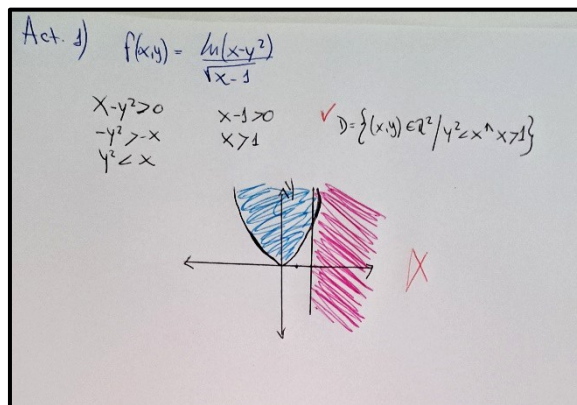 Act. 1)
f(x,y) = ln(x-y²)/√x-1
x-y²>0
-y²>-x
y²<x
x-1>0
x>1
✓ D={(x,y)∈ℝ²/y²<x ^ x>1}
y
X